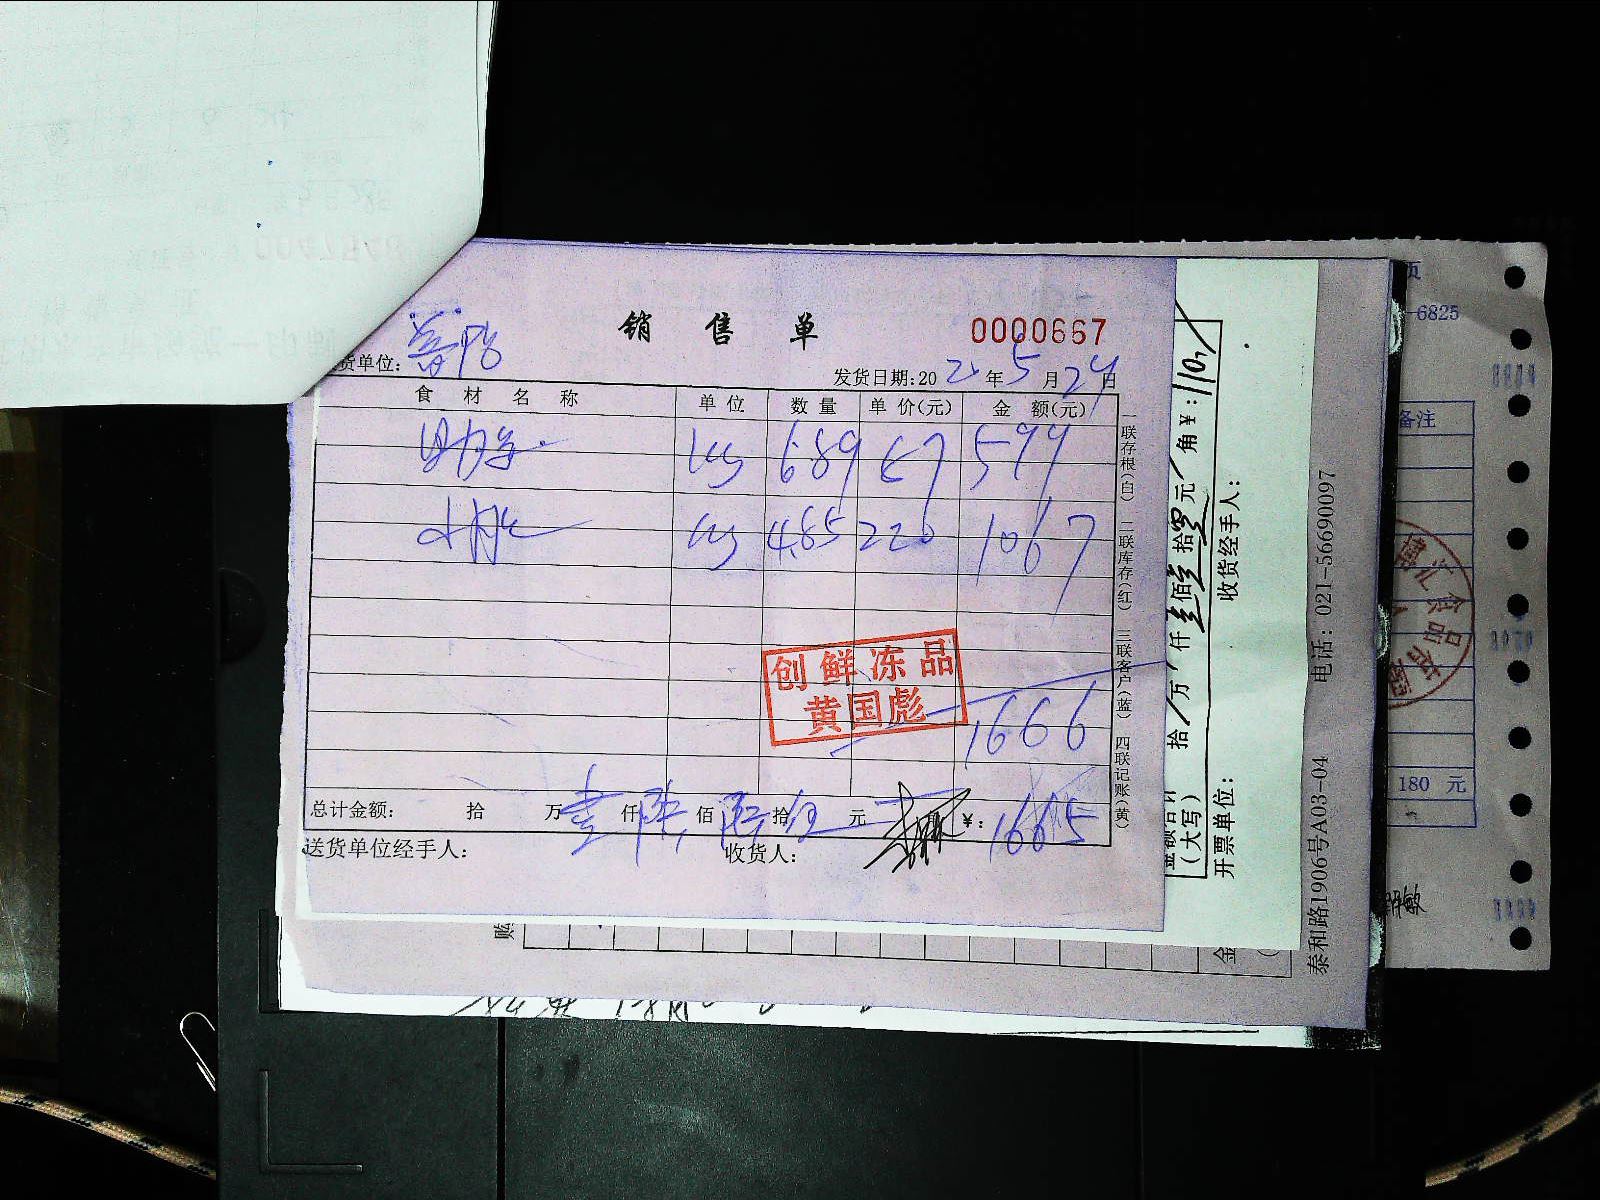 销售单
0000667
货单位:
发货日期:20 21 年 5 月 24 日
食材名称 单位 数量 单价(元) 金额(元)
kg 6.89 87 599
kg 4.85 220 1067
创鲜冻品
黄国彪
1666
总计金额: 拾 万 壹 仟 陆 佰 陆 拾 伍 元 ¥: 1665
送货单位经手人: 收货人:
一联存根(白) 二联库存(红) 三联客户(蓝) 四联记账(黄)
(大写) 拾 万 仟 壹 佰 壹 拾 零 元 角 ¥: 110
开票单位: 收货经手人:
泰和路1906号A03-04 电话: 021-56690097
购
金
页
6825
备注
180 元